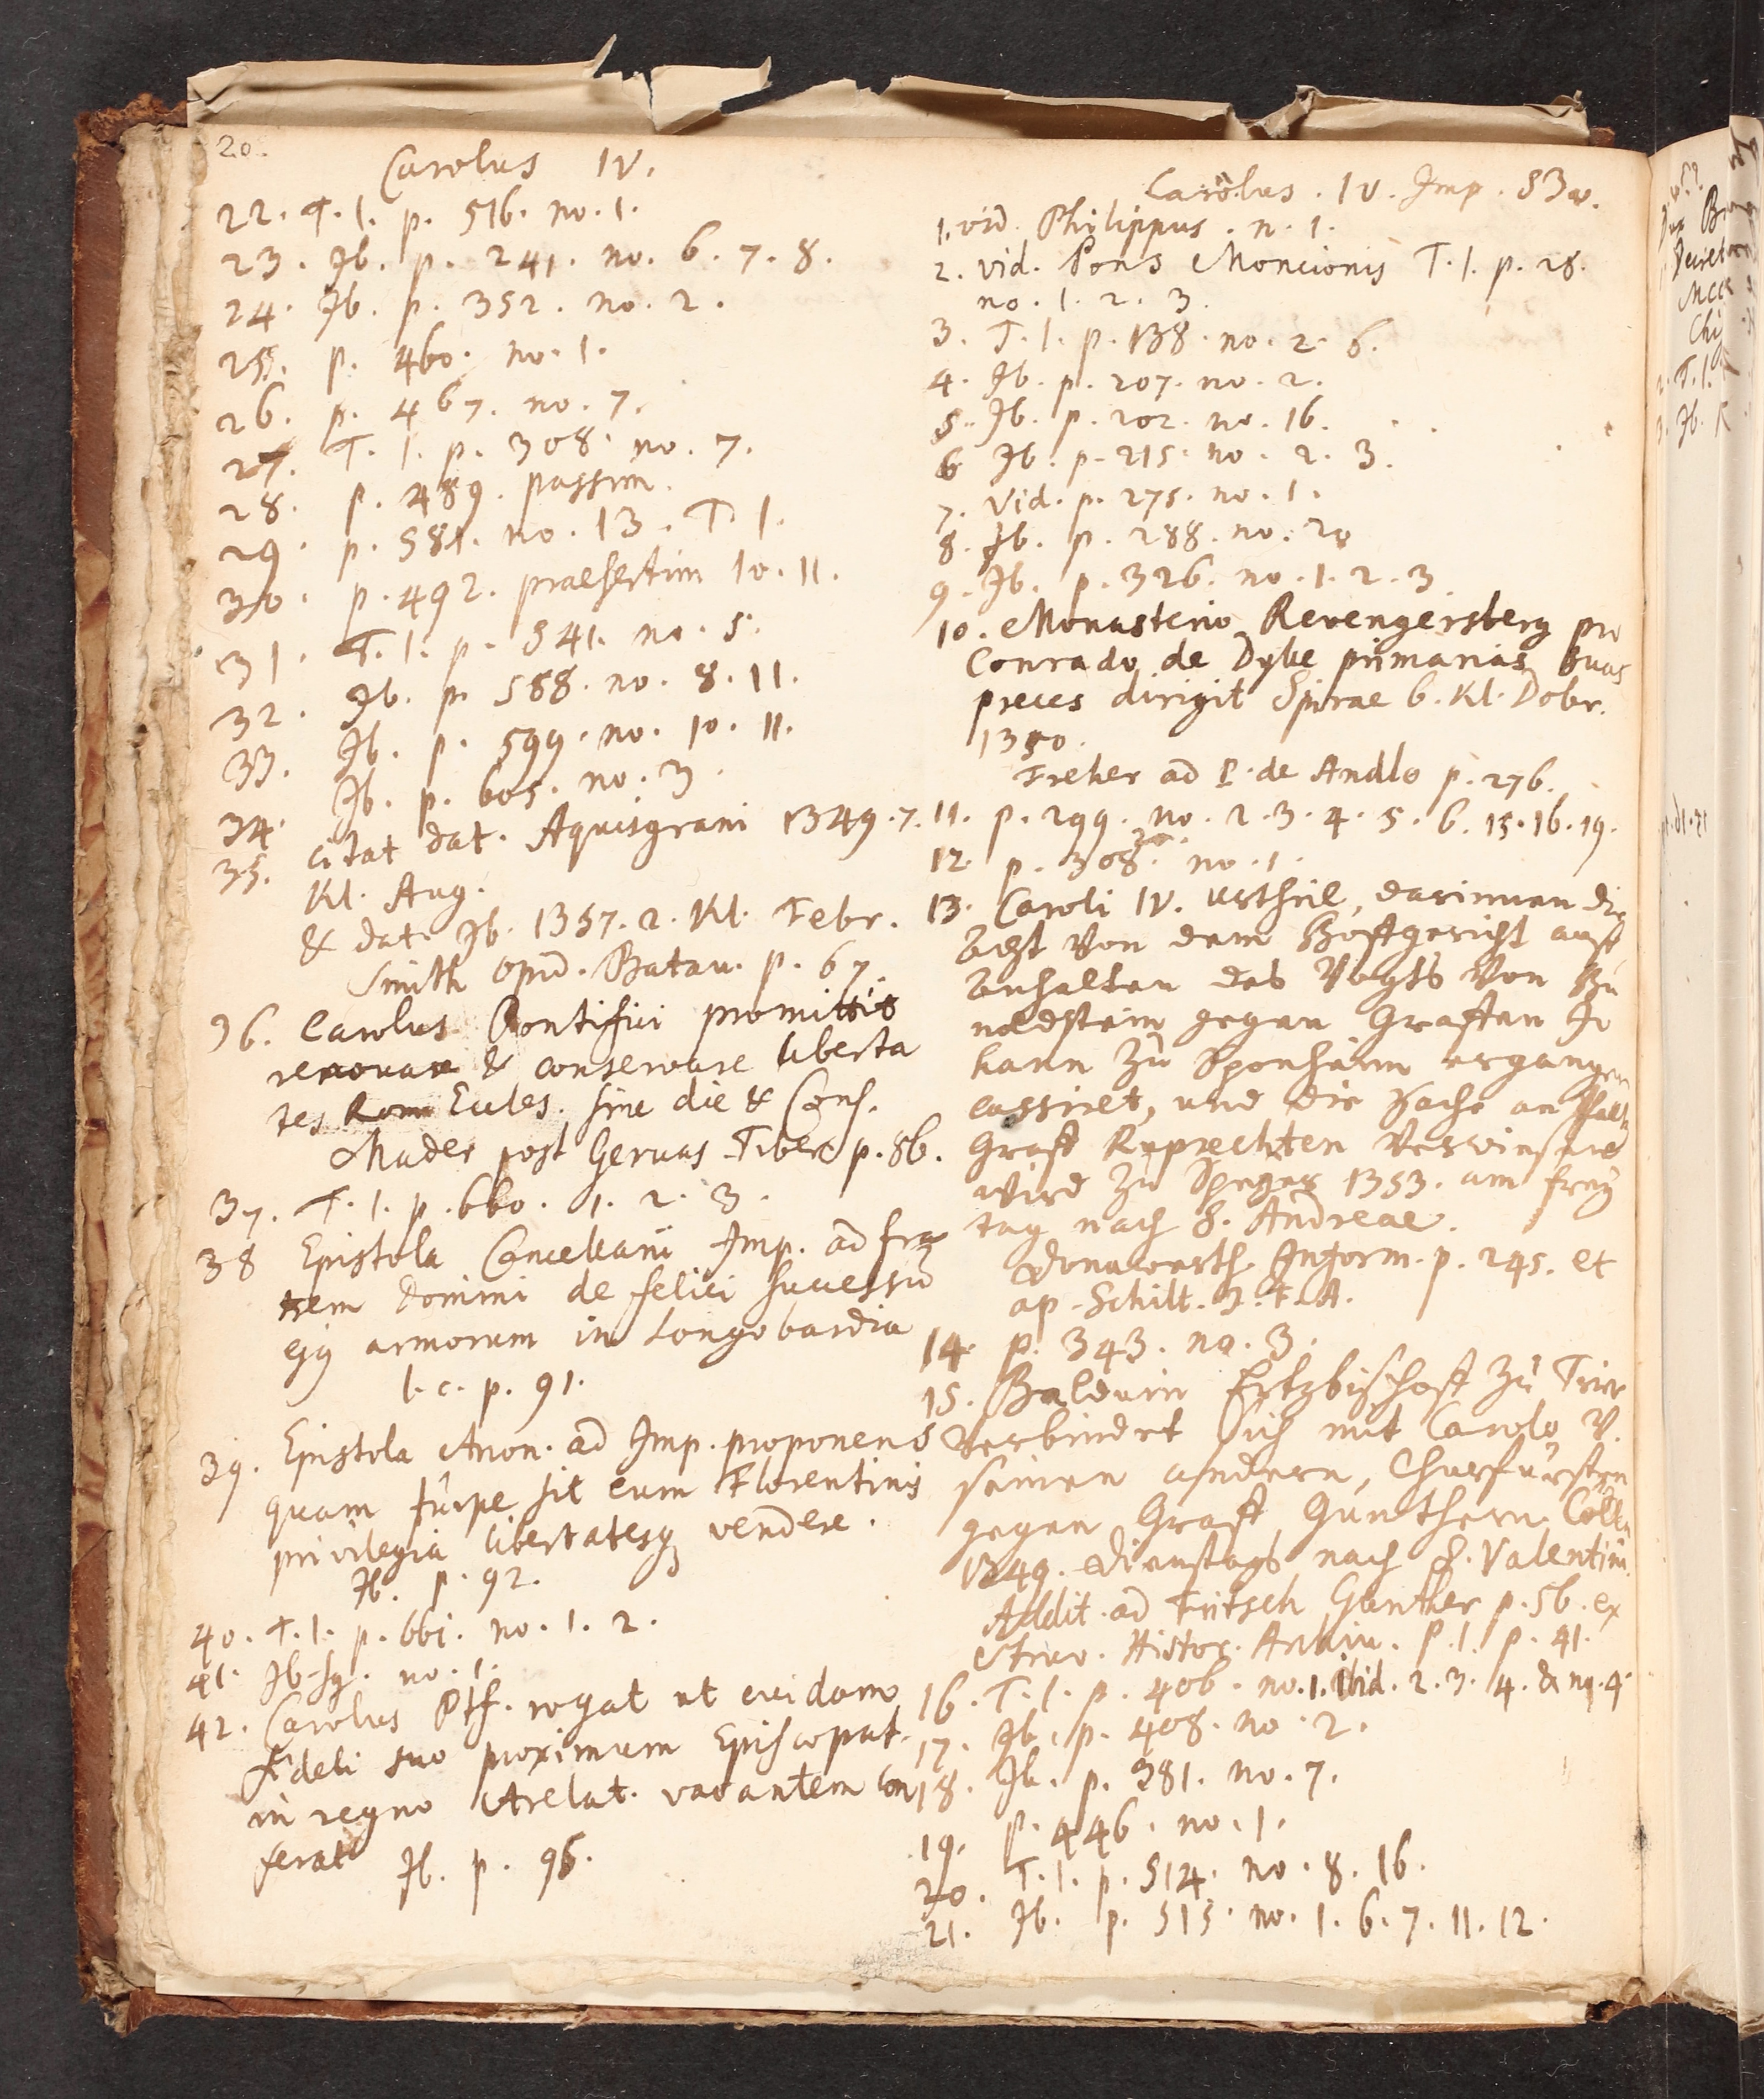 20.
Carolus IV.
22. T. I. p. 516. no. 1.
23. Ib. p. 241. no. 6. 7. 8.
24. Ib. p. 352. no. 2.
25. p. 460. no. 1.
26. p. 467. no. 7.
27. T. I. p. 308. no. 7.
28. p. 489. passim.
29. p. 581. no. 13. T. I.
30. p. 492. praesertim 10. 11.
31. T. I. p. 541. no. 5.
32. Ib. p. 588. no. 8. 11.
33. Ib. p. 599. no. 10. 11.
34. Ib. p. 605. no. 3.
35. citat dat. Aquisgrani 1349. 7.
Kl. Aug.
& dat. Ib. 1357. 2. Kl. Febr.
Smith Opid. Batav. p. 67.
36. Carolus Pontifici promittit
renovare & conservare liberta
tes Rom Eccles. sine die & Cons.
Mader post Gervas. Tiber p. 86.
37. T. I. p. 660. 1. 2. 3.
38 Epistola Cancellarii Imp. ad fra
trem Domini de felici successu
ejus armorum in Longobardia
l. c. p. 91.
39. Epistola Anon. ad Imp. proponens
quam turpe sit eum Florentinis
privilegia libertatesq vendere.
Ib. p. 92.
40. T. I. p. 661. no. 1. 2.
41. Ib. sq. no. 1.
42. Carolus Ptf. rogat ut cuidam
fideli suo proximum Episcopat.
in regno Arelat. vacantem con
ferat Ib. p. 96.
Carolus. IV. Imp.
1. vid. Philippus. n. 1.
2. vid. Pons Moncionis T. I. p. 28.
no. 1. 2. 3.
3. T. I. p. 138. no. 2. 6.
4. Ib. p. 207. no. 2.
5. Ib. p. 202. no. 16.
6 Ib. p. 215. no. 2. 3.
7. Vid. p. 275. no. 1.
8. Ib. p. 288. no. 20
9. Ib. p. 326. no. 1. 2. 3.
10. Monasterio Revengersberg pro
Conrado de Dybe primarias suas
preces dirigit Spirae 6. Kl. Dobr.
1350.
Freher ad P. de Andlo p. 276.
11. p. 299. no. 2. 3. 4. 5. 6. 15. 16. 19.
12. p. 308. no. 1.
13. Caroli IV. Urtheil, darinnen die
Acht von dem Hoffgericht auff
Anhalten des Vogts von Hu
noldstein gegen Graffen Jo
hann zu Sponheim ergangen
cassiret, und die Sache an Pfaltz
Graff Ruprechten verwiesen
wird zu Speyer 1353. am frey
tag nach S. Andreae.
Donawerth. Inform. p. 245. et
ap. Schilt. I. F. A.
14. p. 343. no. 3.
15. Balduin Ertzbischoff zu Trier
verbindet sich mit Carolo V.
seinen andern, Churfürsten
gegen Graff Gunthern Cölln
1349. Dienstags nach S. Valentin.
Addit. ad Fritsch Gunther p. 56. ex
Struv. Histor. Archiv. P. I. p. 41.
16. T. I. p. 406. no. 1. Ibid. 2. 3. 4. & no. 4.
17. Ib. p. 408. no. 2.
18. Ib. p. 381. no. 7.
19. p. 446. no. 1.
20. T. I. p. 514. no. 8. 16.
21. Ib. p. 515. no. 1. 6. 7. 11. 12.